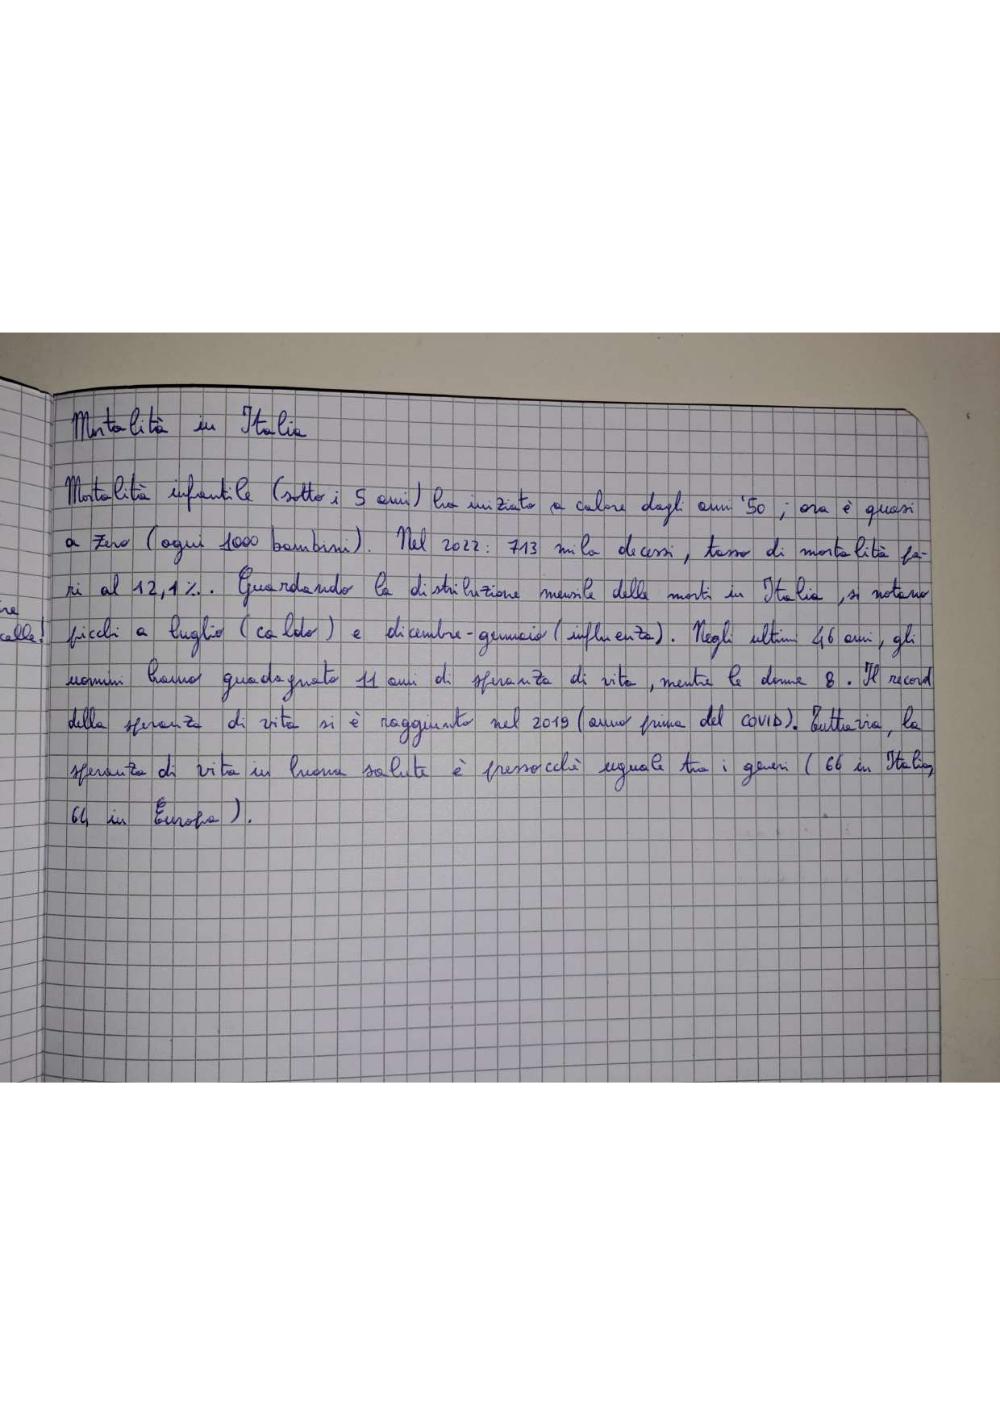 Mortalità in Italia
Mortalità infantile (sotto i 5 anni) ha iniziato a calare dagli anni '50; ora è quasi
a zero (ogni 1000 bambini). Nel 2022: 713 mila decessi, tasso di mortalità pa-
ri al 12,1%. Guardando la distribuzione mensile delle morti in Italia, si notano
picchi a luglio (caldo) e dicembre-gennaio (influenza). Negli ultimi 46 anni, gli
uomini hanno guadagnato 11 anni di speranza di vita, mentre le donne 8. Il record
della speranza di vita si è raggiunto nel 2019 (anno prima del COVID). Tuttavia, la
speranza di vita in buona salute è pressocché uguale tra i generi (66 in Italia,
64 in Europa).